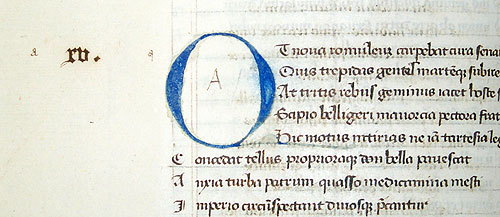 xv. A T noua romuleuz carpebat aura sena
Quis trepidas gentes martemqz subire
At tritis rebus geminus iacet hoste s
Scipio belligeri mauorcia pectora frat
Hic motus intirias ne iā tartesia le
C oncedat tellus proprioraqz don bella pauescat
A nxia turba patrum quasso medicamina mesti
I mperio circūspectant diuosqz p̄cantur